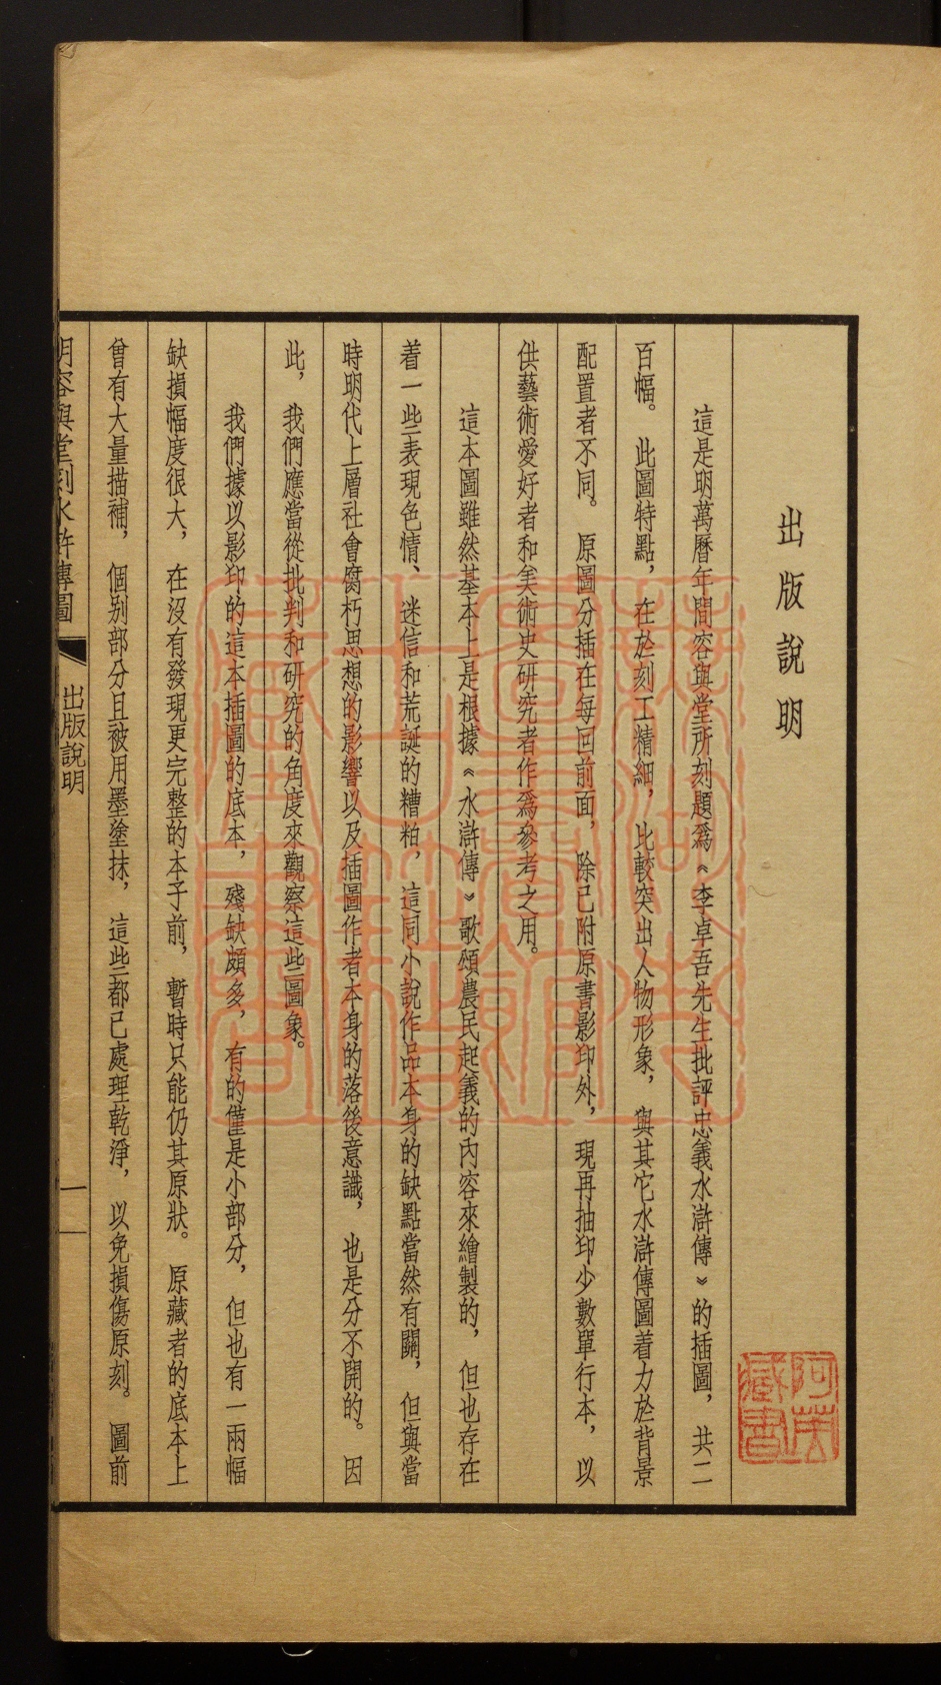 出版說明
這是明萬曆年間容與堂所刻題爲《李卓吾先生批評忠義水滸傳》的插圖，共二
百幅。此圖特點，在於刻工精細，比較突出人物形象，與其它水滸傳圖着力於背景
配置者不同。原圖分插在每回前面，除已附原書影印外，現再抽印少數單行本，以
供藝術愛好者和美術史研究者作爲參考之用。
這本圖雖然基本上是根據《水滸傳》歌頌農民起義的內容來繪製的，但也存在
着一些表現色情、迷信和荒誕的糟粕，這同小說作品本身的缺點當然有關，但與當
時明代上層社會腐朽思想的影響以及插圖作者本身的落後意識，也是分不開的。因
此，我們應當從批判和研究的角度來觀察這些圖象。
我們據以影印的這本插圖的底本，殘缺頗多，有的僅是小部分，但也有一兩幅
缺損幅度很大，在沒有發現更完整的本子前，暫時只能仍其原狀。原藏者的底本上
曾有大量描補，個別部分且被用墨塗抹，這些都已處理乾淨，以免損傷原刻。圖前
明容與堂刻水滸傳圖
出版說明
一
阿英
藏書
藏書